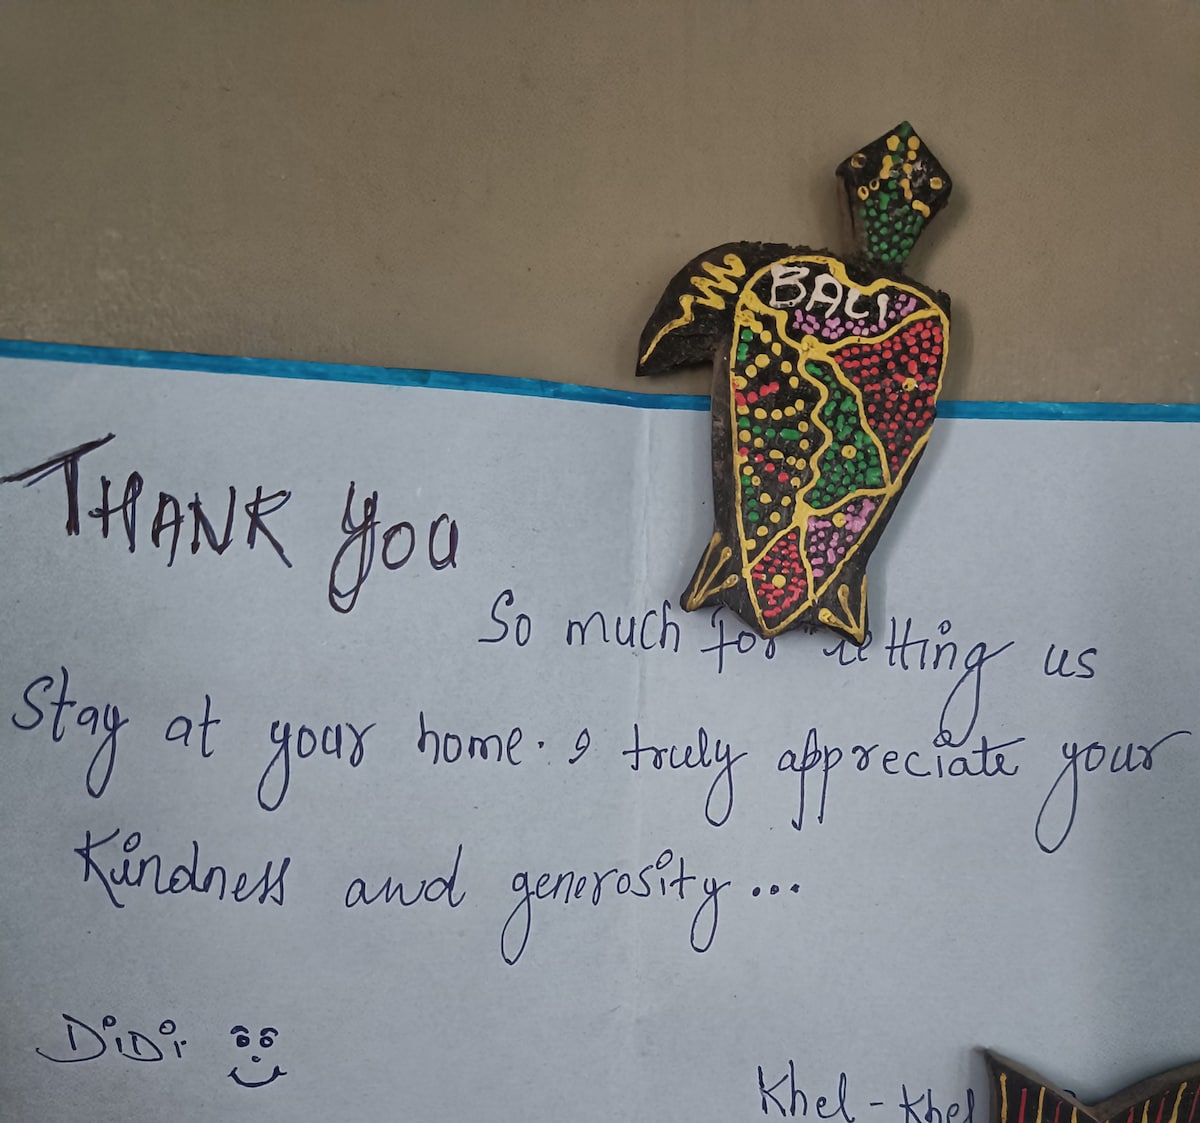 BALI
THANK you
So much for letting us
Stay at your home. I truly appreciate your
Kindness and generosity...
DiDi
Khel - Khel